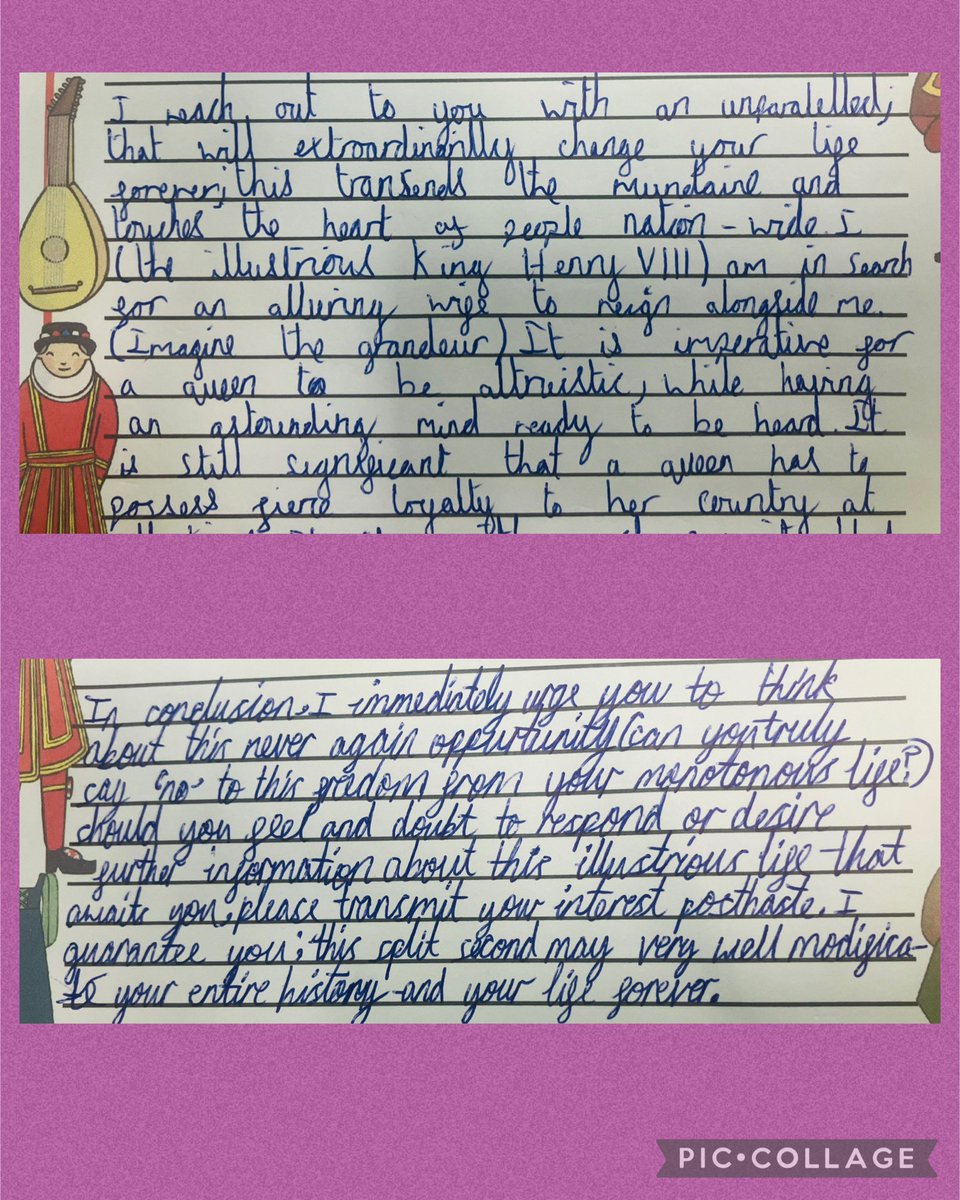 I reach out to you with an unparalelled;
that will extroardinanilly change your life
forever; this transends the mundaine and
touches the heart of people nation-wide. I
(the illustrious King Henry VIII) am in search
for an alluring wife to reign alongside me.
(Imagine the grandeur) It is imperative for
a queen to be altruistic, while having
an astounding mind ready to be heard. It
is still significant that a queen has to
possess fierc loyalty to her country at
In conclusion, I immediately urge you to think
about this never again oppurtunity (can you truly
say "no" to this fredom from your monotonous life?)
should you feel and doubt to respond or desire
further information about this illustrious life that
awaits you, please transmit your interest posthaste. I
guarantee you; this split second may very well modifica-
te your entire history and your life forever.
PIC•COLLAGE